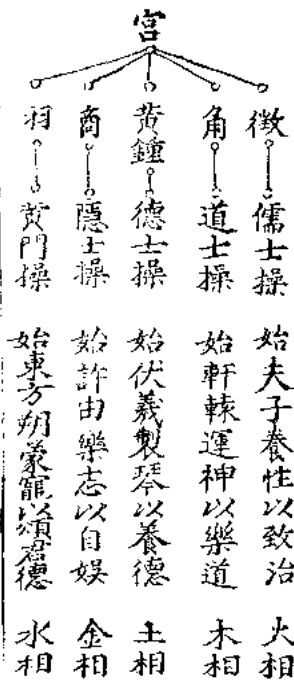 宮
徵 儒士操 始夫子養性以致治 火相
角 道士操 始軒轅運神以樂道 木相
黄鐘 德士操 始伏羲製琴以養德 土相
商 隱士操 始許由樂志以自娛 金相
羽 黄門操 始東方朔蒙寵以頌君德 水相